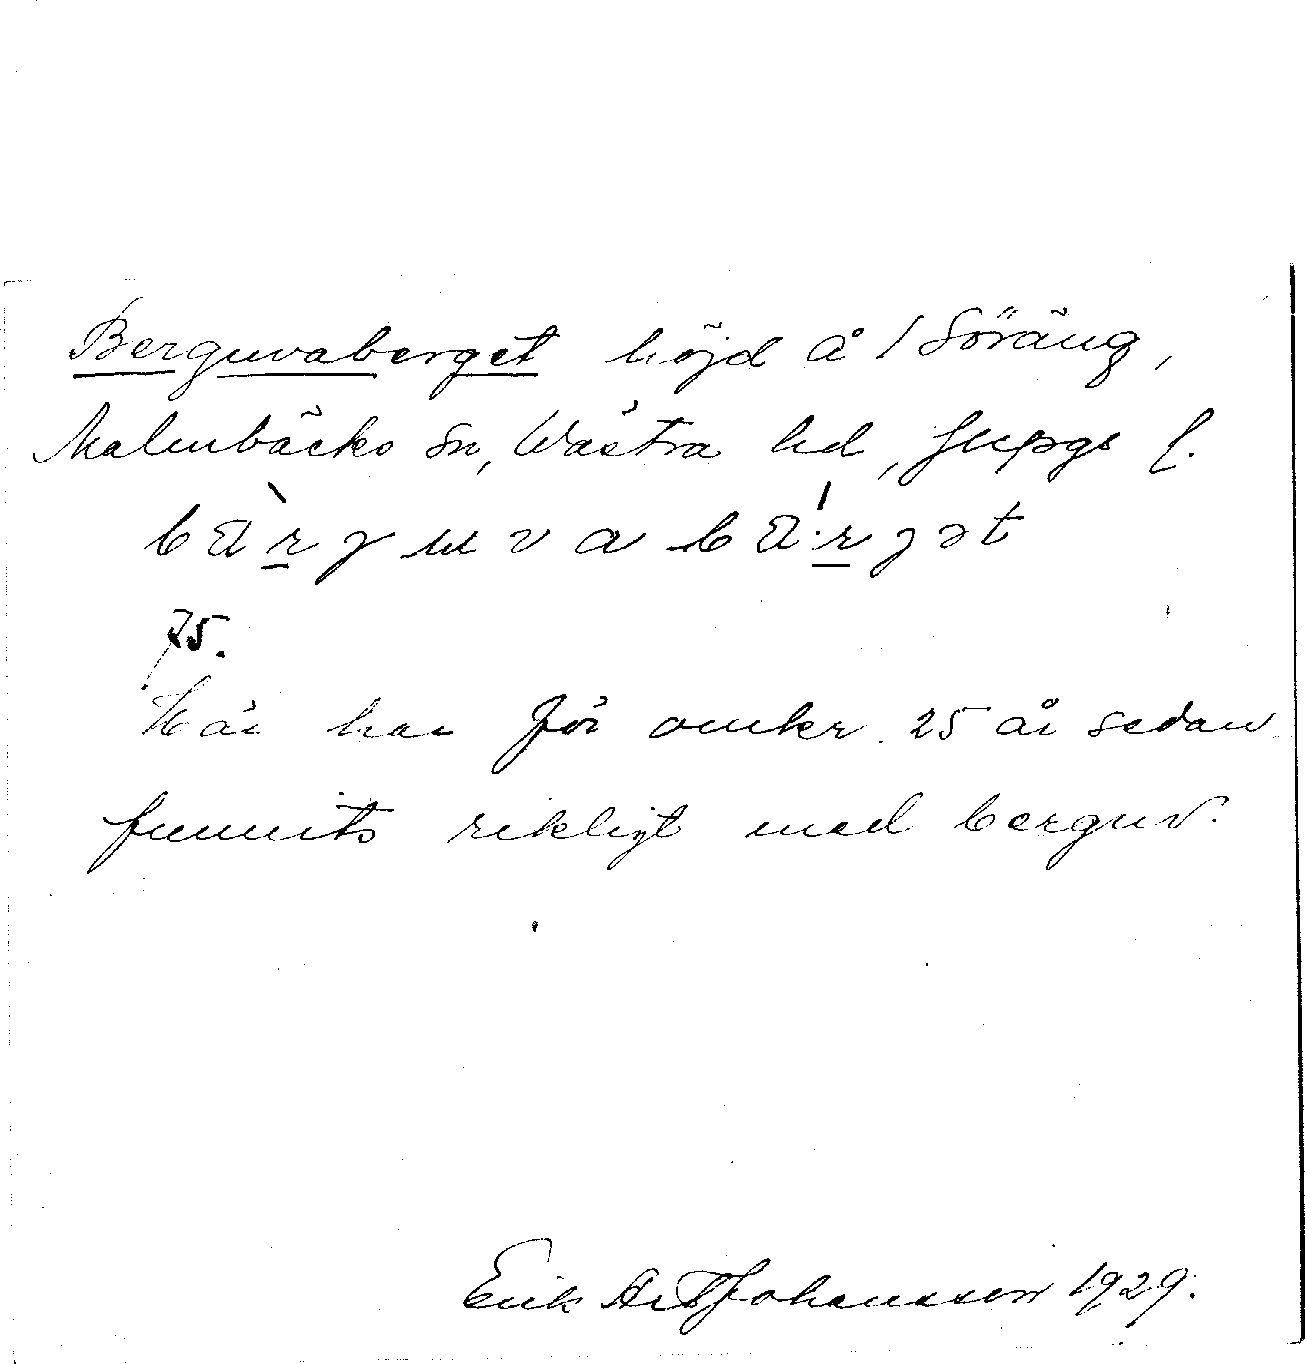 Berguvaberget höjd å 1 Söräng,
Malmbäcks sn, Västra hd, Jkpgs l.
bàrguvabá·rgət
75.
Här har för omkr. 25 år sedan
funnits rikligt med berguv.
Erik Johansson 1929.